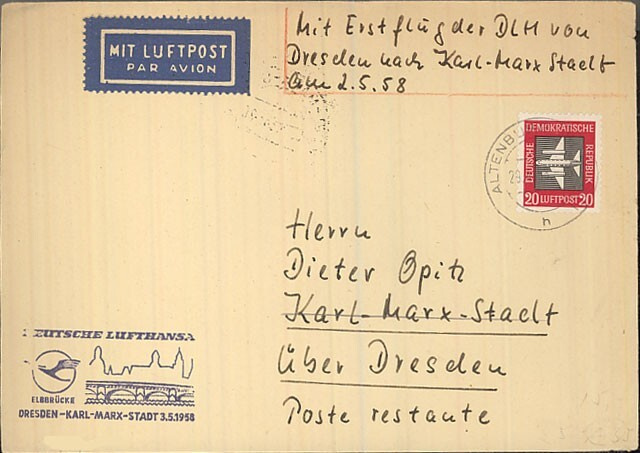 MIT LUFTPOST
PAR AVION
Mit Erstflug der DLH von
Dresden nach Karl-Marx Stadt
am 2.5.58
ALTENBU
n
DEMOKRATISCHE
DEUTSCHE
REPUBLIK
20 LUFTPOST 20
Herrn
Dieter Opitz
Karl-Marx-Stadt
über Dresden
Poste restante
DEUTSCHE LUFTHANSA
ELBBRÜCKE
DRESDEN-KARL-MARX-STADT 3.5.1958